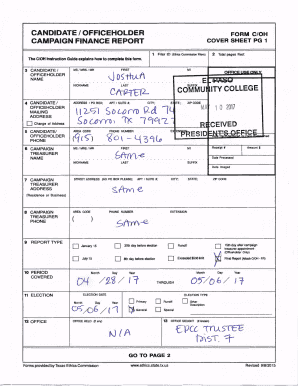 CANDIDATE / OFFICEHOLDER FORM C/OH
CAMPAIGN FINANCE REPORT COVER SHEET PG 1
The C/OH Instruction Guide explains how to complete this form.
1 Filer ID (Ethics Commission Filers) 2 Total pages filed:
3 CANDIDATE / OFFICEHOLDER NAME
MS / MRS / MR FIRST MI
Joshua
NICKNAME LAST SUFFIX
CARTER
OFFICE USE ONLY
EL PASO
COMMUNITY COLLEGE
MAY 10 2017
RECEIVED
PRESIDENT'S OFFICE
4 CANDIDATE / OFFICEHOLDER MAILING ADDRESS
Change of Address
ADDRESS / PO BOX; APT / SUITE #; CITY; STATE; ZIP CODE
11251 Socorro Rd
Socorro, TX 79927
5 CANDIDATE / OFFICEHOLDER PHONE
AREA CODE PHONE NUMBER EXTENSION
(915) 801-4396
Receipt # Amount $
Date Processed
Date Imaged
6 CAMPAIGN TREASURER NAME
MS / MRS / MR FIRST MI
Same
NICKNAME LAST SUFFIX
7 CAMPAIGN TREASURER ADDRESS
(Residence or Business)
STREET ADDRESS (NO PO BOX PLEASE); APT / SUITE #; CITY; STATE; ZIP CODE
SAME
8 CAMPAIGN TREASURER PHONE
AREA CODE PHONE NUMBER EXTENSION
( ) Same
9 REPORT TYPE
January 15 30th day before election Runoff 15th day after campaign treasurer appointment (Officeholder Only)
July 15 8th day before election Exceeded $500 limit Final Report (Attach C/OH - FR)
10 PERIOD COVERED
Month Day Year Month Day Year
04/28/17 THROUGH 05/06/17
11 ELECTION
ELECTION DATE ELECTION TYPE
Month Day Year
05/06/17
Primary Runoff Other Description
General Special
12 OFFICE
OFFICE HELD (if any)
N/A
13 OFFICE SOUGHT (if known)
EPCC TRUSTEE
DIST. 7
GO TO PAGE 2
Forms provided by Texas Ethics Commission www.ethics.state.tx.us Revised 9/8/2015